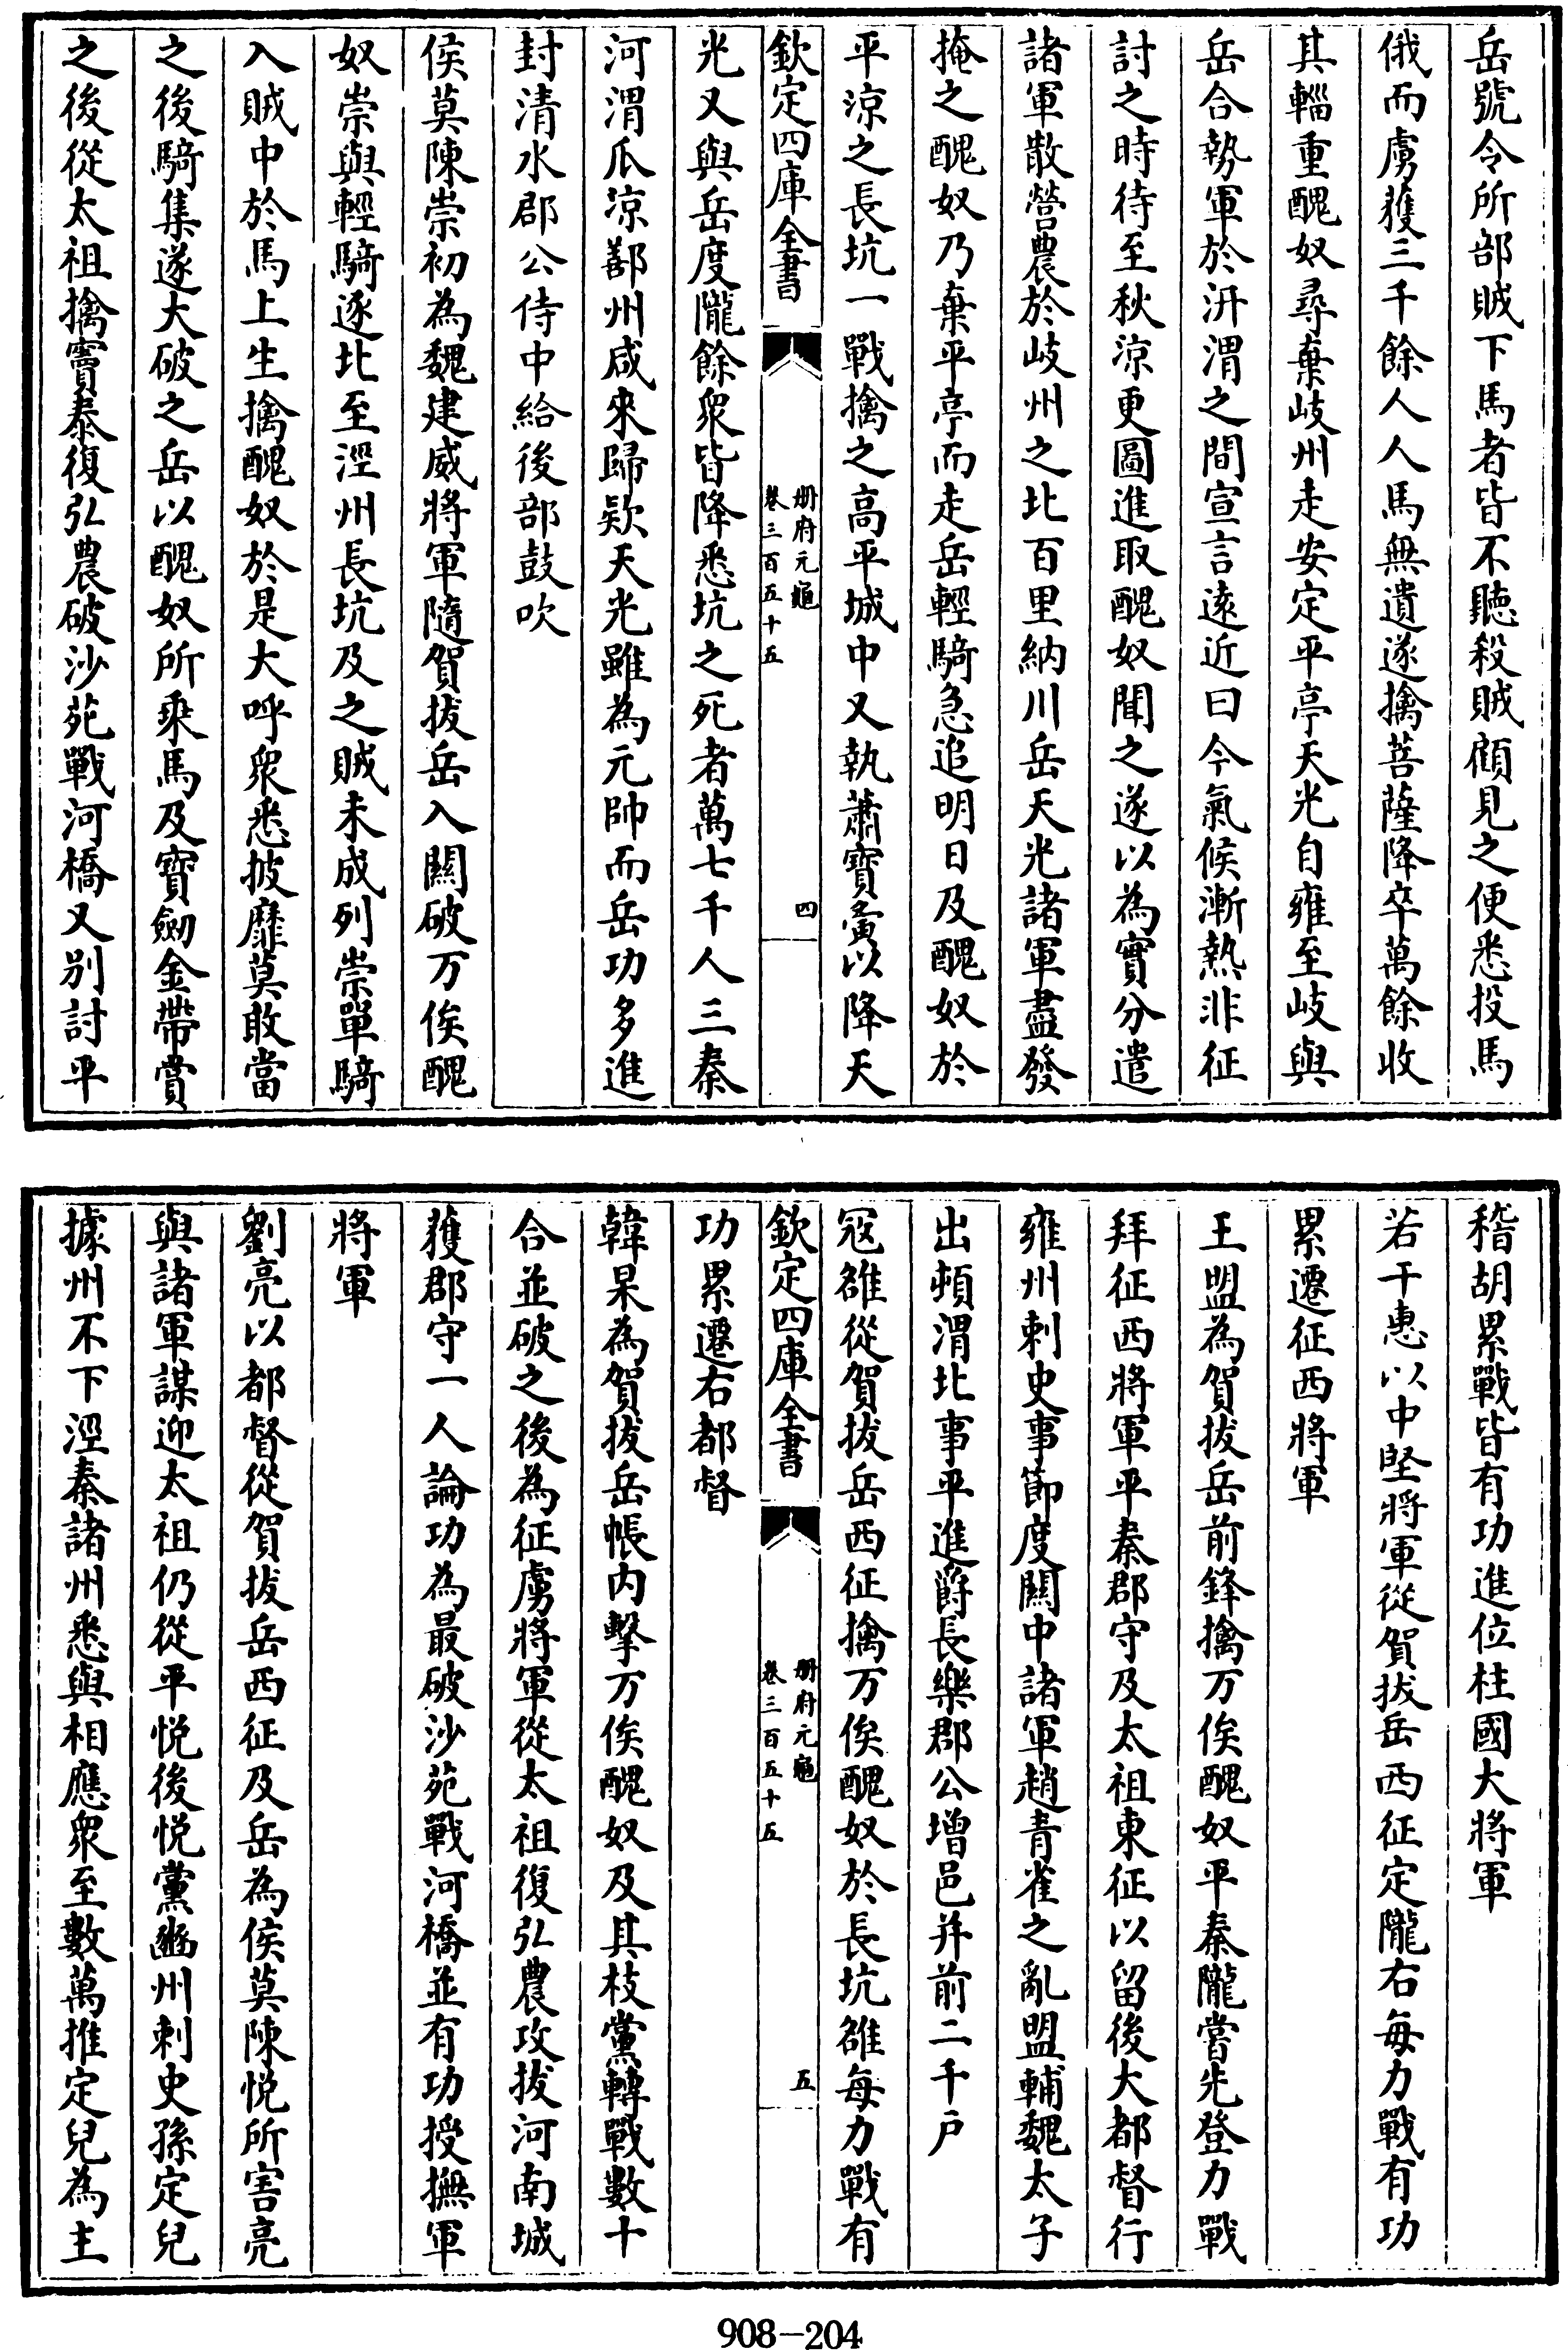 岳號令所部賊下馬者皆不聽殺賊顧見之便悉投馬
俄而虜獲三千餘人人馬無遺遂擒菩薩降卒萬餘收
其輜重醜奴尋棄岐州走安定平亭天光自雍至岐與
岳合勢軍於汧渭之間宣言遠近曰今氣候漸熱非征
討之時待至秋涼更圖進取醜奴聞之遂以為實分遣
諸軍散營農於岐州之北百里納川岳天光諸軍盡發
掩之醜奴乃棄平亭而走岳輕騎急追明日及醜奴於
平涼之長坑一戰擒之高平城中又執蕭寶夤以降天
欽定四庫全書
冊府元龜
卷三百五十五
四
光又與岳度隴餘眾皆降悉坑之死者萬七千人三秦
河渭瓜涼鄯州咸來歸欵天光雖為元帥而岳功多進
封清水郡公侍中給後部鼓吹
侯莫陳崇初為魏建威將軍隨賀拔岳入關破万俟醜
奴崇與輕騎逐北至涇州長坑及之賊未成列崇單騎
入賊中於馬上生擒醜奴於是大呼眾悉披靡莫敢當
之後騎集遂大破之岳以醜奴所乘馬及寶劒金帶賞
之後從太祖擒竇泰復弘農破沙苑戰河橋又別討平
稽胡累戰皆有功進位柱國大將軍
若干惠以中堅將軍從賀拔岳西征定隴右每力戰有功
累遷征西將軍
王盟為賀拔岳前鋒擒万俟醜奴平秦隴嘗先登力戰
拜征西將軍平秦郡守及太祖東征以留後大都督行
雍州刺史事節度關中諸軍趙青雀之亂盟輔魏太子
出頓渭北事平進爵長樂郡公增邑并前二千戶
冦雒從賀拔岳西征擒万俟醜奴於長坑雒每力戰有
欽定四庫全書
冊府元龜
卷三百五十五
五
功累遷右都督
韓杲為賀拔岳帳內擊万俟醜奴及其枝黨轉戰數十
合並破之後為征虜將軍從太祖復弘農攻拔河南城
獲郡守一人論功為最破沙苑戰河橋並有功授撫軍
將軍
劉亮以都督從賀拔岳西征及岳為侯莫陳悅所害亮
與諸軍謀迎太祖仍從平悅後悅黨豳州刺史孫定兒
據州不下涇秦諸州悉與相應眾至數萬推定兒為主
908-204